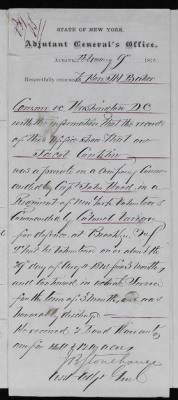 STATE OF NEW YORK.
Adjutant General's Office,
ALBANY, February 9th 187
Respectfully returned to Hon J H Baker
Comr &c Washington D.C.
with the information that the records
of this Office show that one
Daniel Conklin
was a private in a Company Comm
anded by Capt John Wood in a
Regiment of New York Volunteers
Commanded by Colonel
for defence at Brooklyn N.Y.
that he volunteered on or about the
29 day of Augst 1814 for 3 months
and continued in actual Service
for the term of 3 months &
honorably discharge
He received 2 Land Warrants
one for 
J B Stonehouse
Asst Adjt Genl